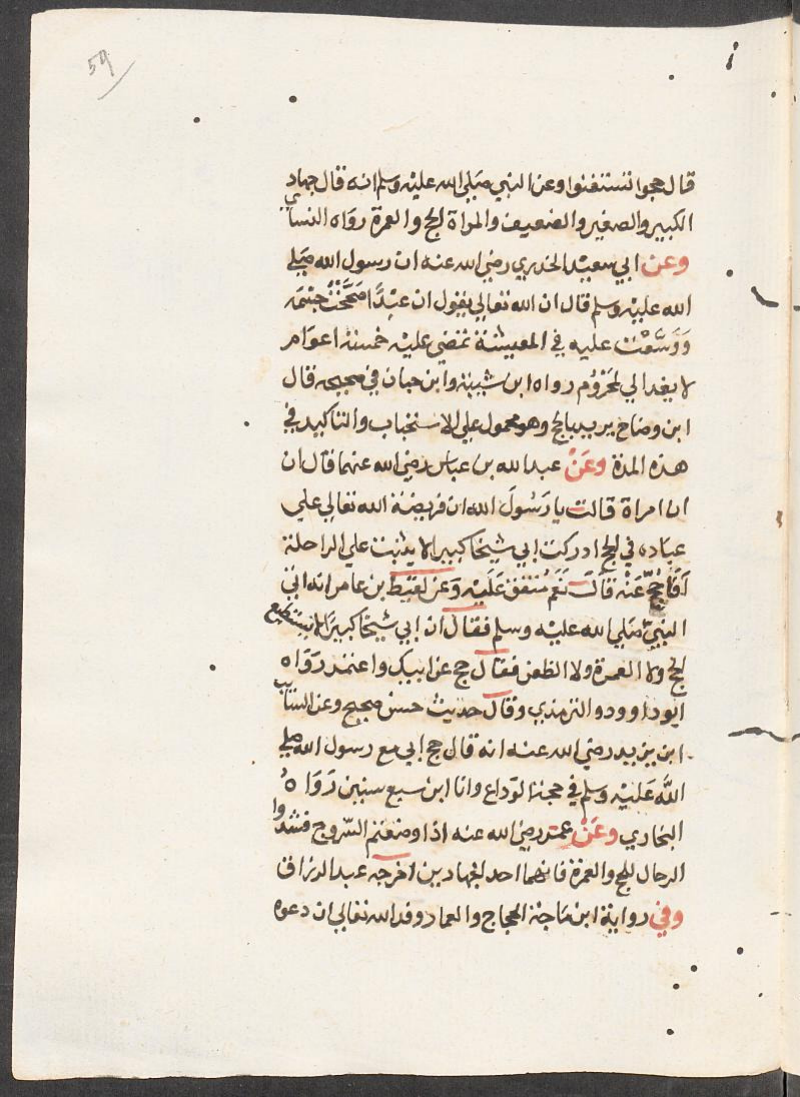 59
قال حجوا تستغنوا وعن النبي صلي الله عليه وسلم انه قال جهاد
الكبير والصغير والضعيف والمراة الحج والعمرة رواه النسائي
وعن ابي سعيد الخدري رضي الله عنه ان رسول الله صلي
الله عليه وسلم قال ان الله تعالي يقول ان عبدًا صححت جسمه
ووسّعت عليه في المعيشة تمضي عليه خمسة اعوام
لا يغد الي لمحروم رواه ابن شيبة وابن حبان في صحيحه قال
ابن وضاح يريد بالحج وهو محمول علي الاستحباب والتاكيد في
هذه المدة وعن عبد الله بن عباس رضي الله عنهما قال ان
ان امراة قالت يا رسول الله ان فريضة الله تعالي علي
عباده في الحج ادركت ابي شيخا كبيرا لا يثبت علي الراحلة
افاحج عنه قال نعم متفق عليه وعن لقيط بن عامر انه اتي
النبي صلي الله عليه وسلم فقال ان ابي شيخا كبيرًا لا يستطيع
الحج ولا العمرة ولا الظعن فقال حج عن ابيك واعتمر رواه
ابو داوود والترمذي وقال حديث حسن صحيح وعن السائب
ابن يزيد رضي الله عنه انه قال حج ابي مع رسول الله صلي
الله عليه وسلم في حجة الوداع وانا ابن سبع سنين رواه
البخاري وعن عمر رضي الله عنه اذا وضعتم السروج فشدوا
الرحال للحج والعمرة فانهما احد الجهادين اخرجه عبد الرزاق
وفي رواية ابن ماجة الحجاج والعمار وفد الله تعالي ان دعوه